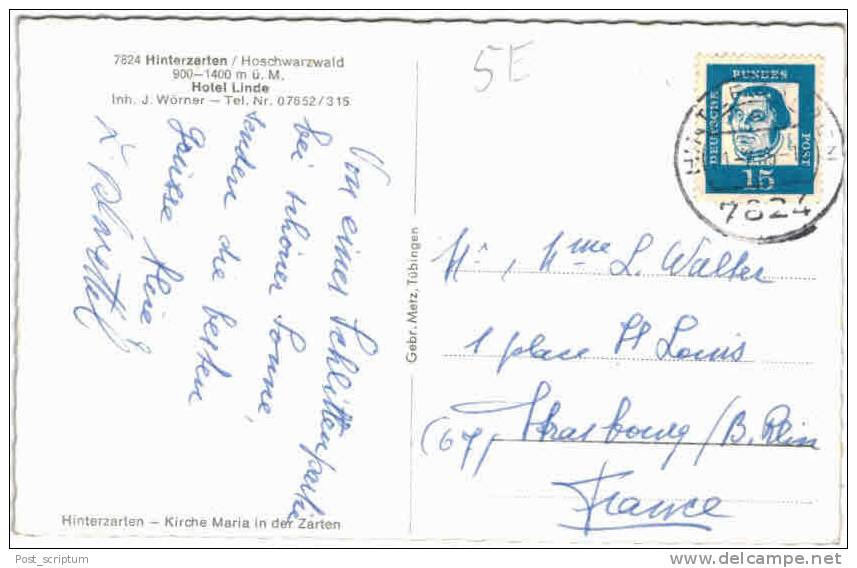 7824 Hinterzarten / Hoschwarzwald
900–1400 m ü. M.
Hotel Linde
Inh. J. Wörner – Tel. Nr. 07652/315
Von einer Schlittenpartie
bei schöner Sonne,
senden die besten
Grüsse
5E
DEUTSCHE
BUNDES
POST
15
7824
Gebr. Metz, Tübingen
Mr, Mme L. Walter
1 place St Louis
(67) Strasbourg / B. Rhin
France
Hinterzarten – Kirche Maria in der Zarten
Post_scriptum
delcampe.net